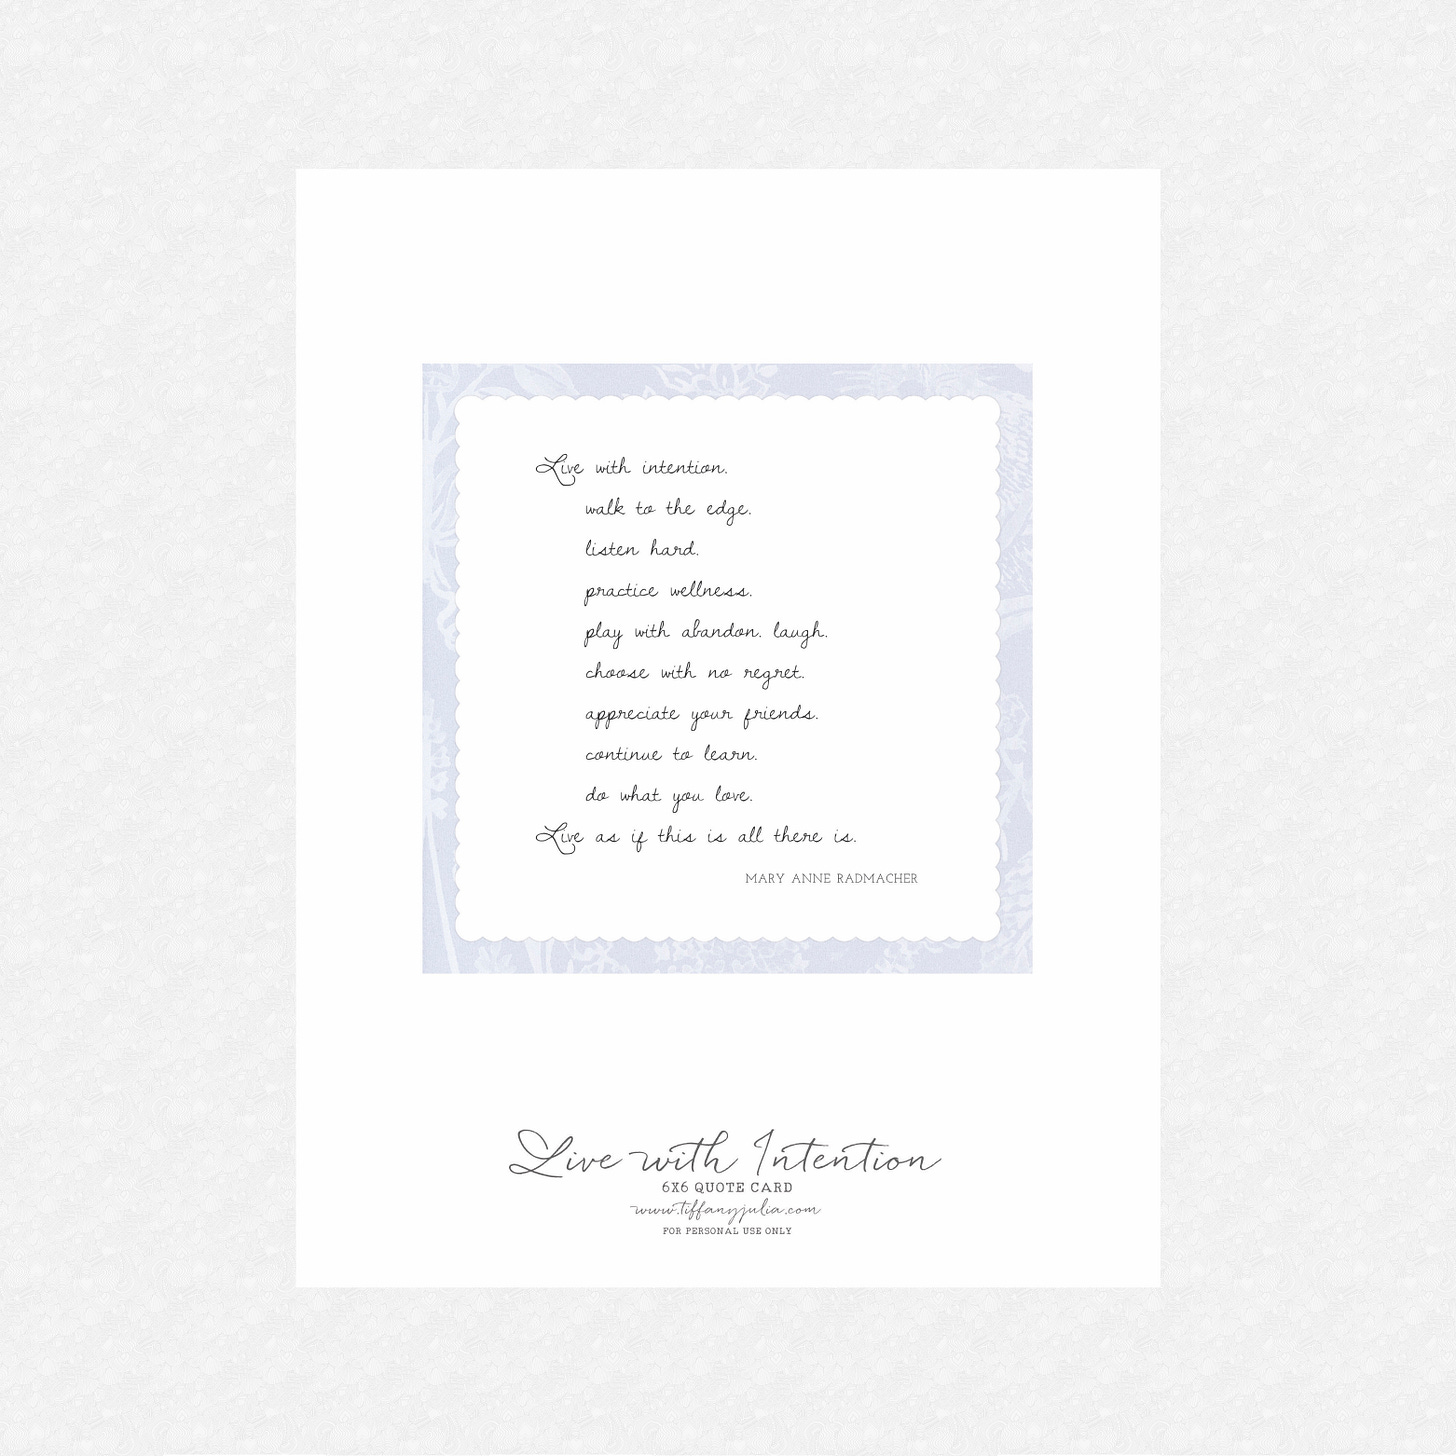 Live with intention.
walk to the edge.
listen hard.
practice wellness.
play with abandon. laugh.
choose with no regret.
appreciate your friends.
continue to learn.
do what you love.
Live as if this is all there is.
MARY ANNE RADMACHER
Live with Intention
6X6 QUOTE CARD
www.tiffanyjulia.com
FOR PERSONAL USE ONLY